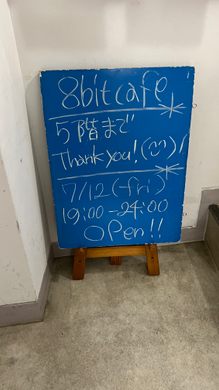 8bitcafe
5階まで
Thank you! (ツ)!
7/12 (-fri)
19:00-24:00
OPen!!